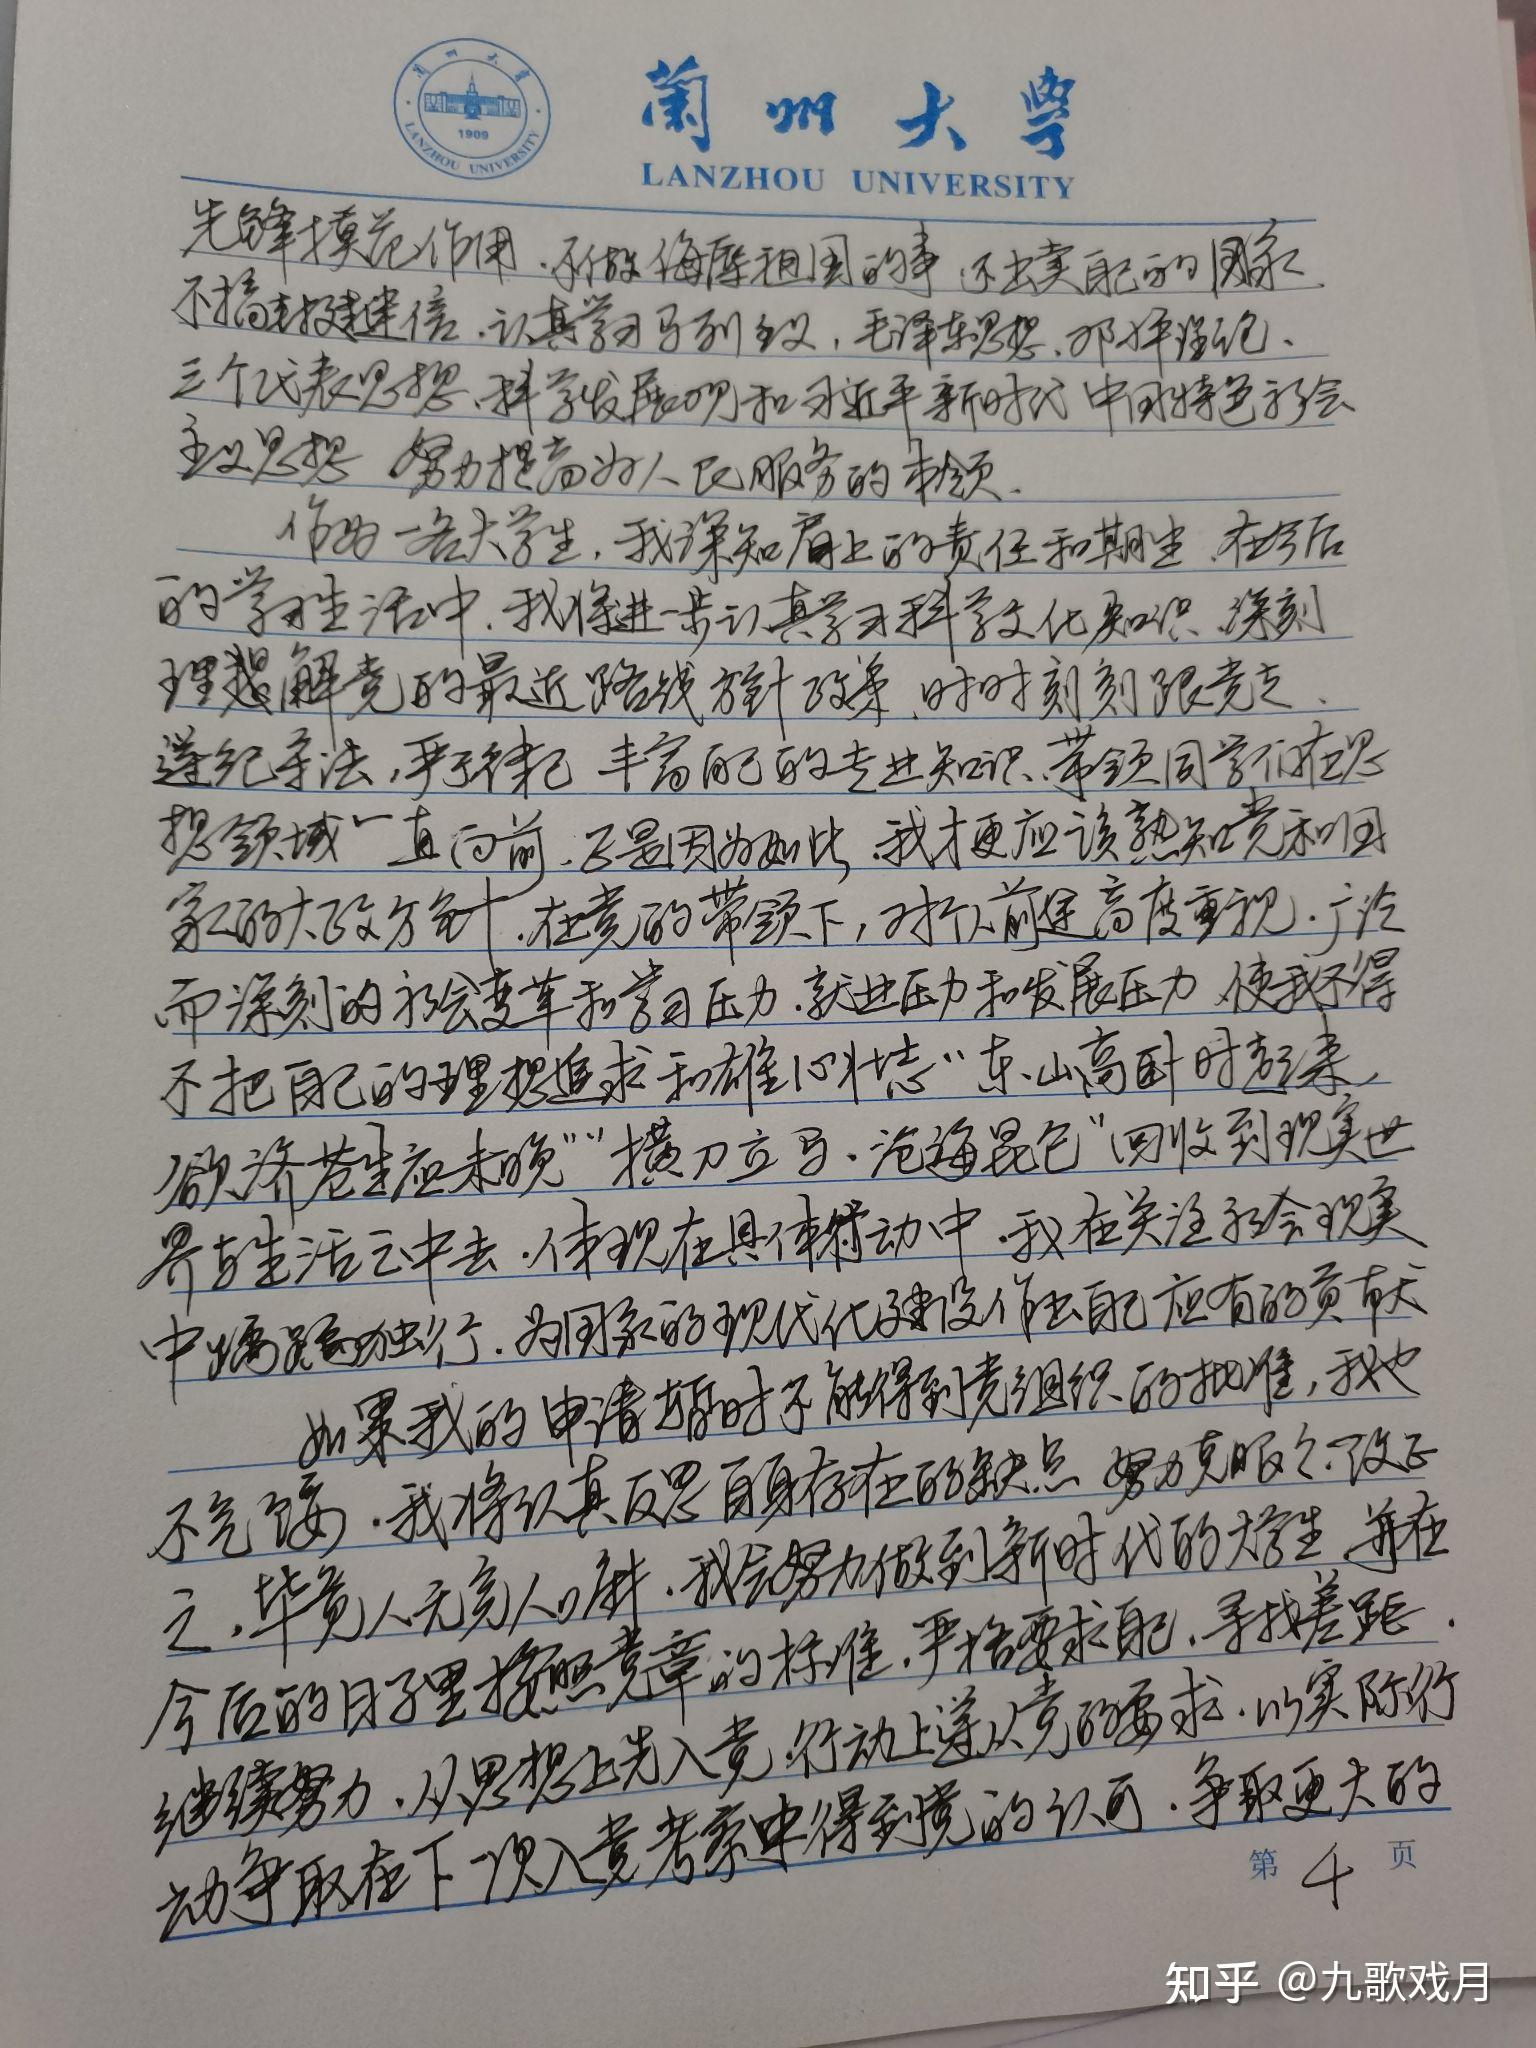 兰州大学
1909
LANZHOU UNIVERSITY
兰州大学
LANZHOU UNIVERSITY
先锋模范作用.不做侮辱祖国的事 不出卖自己的国家
不搞封建迷信.认真学习马列主义,毛泽东思想、邓小平理论、
三个代表思想、科学发展观和习近平新时代中国特色社会
主义思想 努力提高为人民服务的本领.
作为一名大学生,我深知肩上的责任和期望.在今后
的学习生活中,我将进一步认真学习科学文化知识、深刻
理解党的最近路线方针政策,时时刻刻跟党走.
遵纪守法,严于律己 丰富自己的专业知识、带领同学们在思
想领域一直向前.正是因为如此,我才更应该熟知党和国
家的大政方针.在党的带领下,对个人前途高度重视.广泛
而深刻的社会变革和学习压力.就业压力和发展压力 使我不得
不把自己的理想追求和雄心壮志“东山高卧时起来,
欲济苍生应未晚”“横刀立马.沧海昆仑”回收到现实世
界与生活之中去.体现在具体行动中.我在关注社会现实
中踽踽独行.为国家的现代化建设作出自己应有的贡献
如果我的申请暂时不能得到党组织的批准,我也
不气馁.我将认真反思自身存在的缺点 努力克服 改正
之.毕竟人无完人嘛.我会努力做到新时代的大学生 并在
今后的日子里按照党章的标准,严格要求自己,寻找差距.
继续努力.从思想上先入党.行动上遵从党的要求.以实际行
动争取在下一次入党考察中得到党的认可.争取更大的
第 4 页
知乎 @九歌戏月